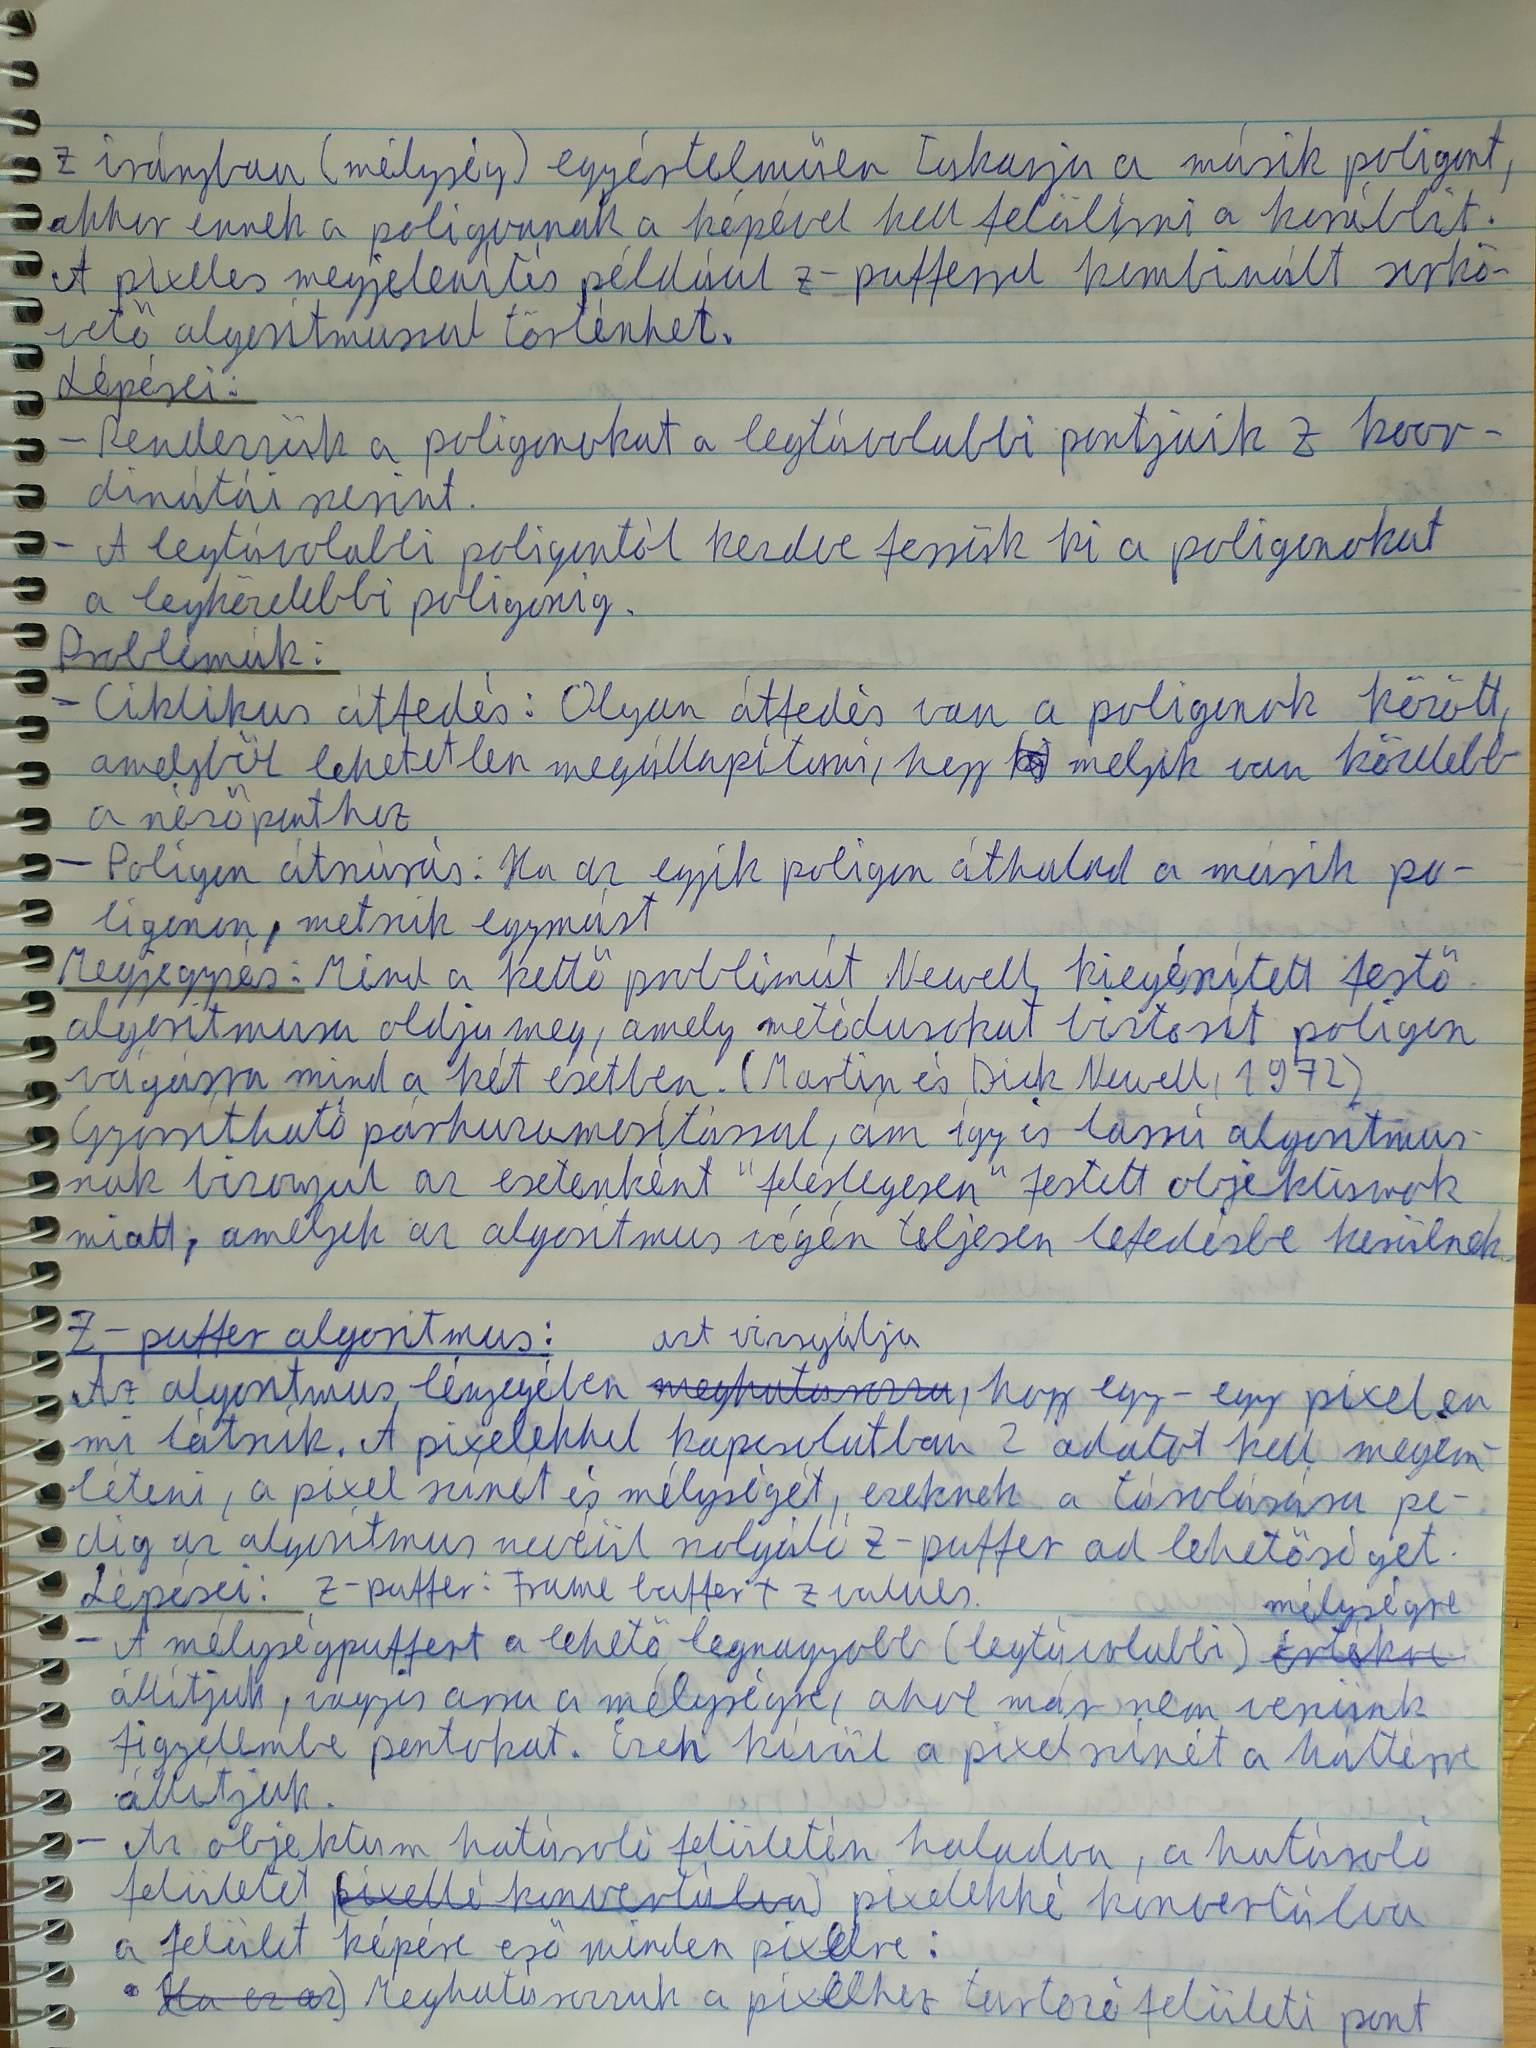 z irányban (mélység) egyértelműen takarja a másik poligont,
akkor ennek a poligonnak a képével kell felülírni a korábbit.
A pixeles megjelenítés például z-pufferrel kombinált sorkö-
vető algoritmussal történhet.
Lépései:
- Rendezzük a poligonokat a legtávolabbi pontjaik Z koor-
dinátái szerint.
- A legtávolabbi poligontól kezdve fessük ki a poligonokat
a legközelebbi poligonig.
Problémák:
- Ciklikus átfedés: Olyan átfedés van a poligonok között,
amelyből lehetetlen megállapítani, hogy melyik van közelebb
a nézőponthoz
- Poligon átszúrás: Ha az egyik poligon áthalad a másik po-
ligonon, metszik egymást
Megjegyzés: Mind a kettő problémát Newell kiegészített festő
algoritmusa oldja meg, amely metódusokat biztosít poligon
vágásra mind a két esetben. (Martin és Dick Newell, 1972)
Gyorsítható párhuzamosítással, ám így is lassú algoritmus-
nak bizonyul az esetenként "feleslegesen" festett objektumok
miatt, amelyek az algoritmus végén teljesen lefedésbe kerülnek.
Z-puffer algoritmus: azt vizsgálja
Az algoritmus lényegében meghatározza, hogy egy-egy pixelen
mi látszik. A pixelekkel kapcsolatban 2 adatot kell megem-
líteni, a pixel színét és mélységét, ezeknek a tárolására pe-
dig az algoritmus nevéül szolgáló Z-puffer ad lehetőséget.
Lépései: Z-puffer: Frame buffer + z values.
mélységre
- A mélységpuffert a lehető legnagyobb (legtávolabbi) értékre
állítjuk, vagyis arra a mélységre, ahol már nem veszünk
figyelembe pontokat. Ezen kívül a pixel színét a háttérre
állítjuk.
- Az objektum határoló felületén haladva, a határoló
felületet (pixellé konvertálva) pixelekké konvertálva
a felület képére eső minden pixelre:
• Ha ez az) Meghatározzuk a pixelhez tartozó felületi pont